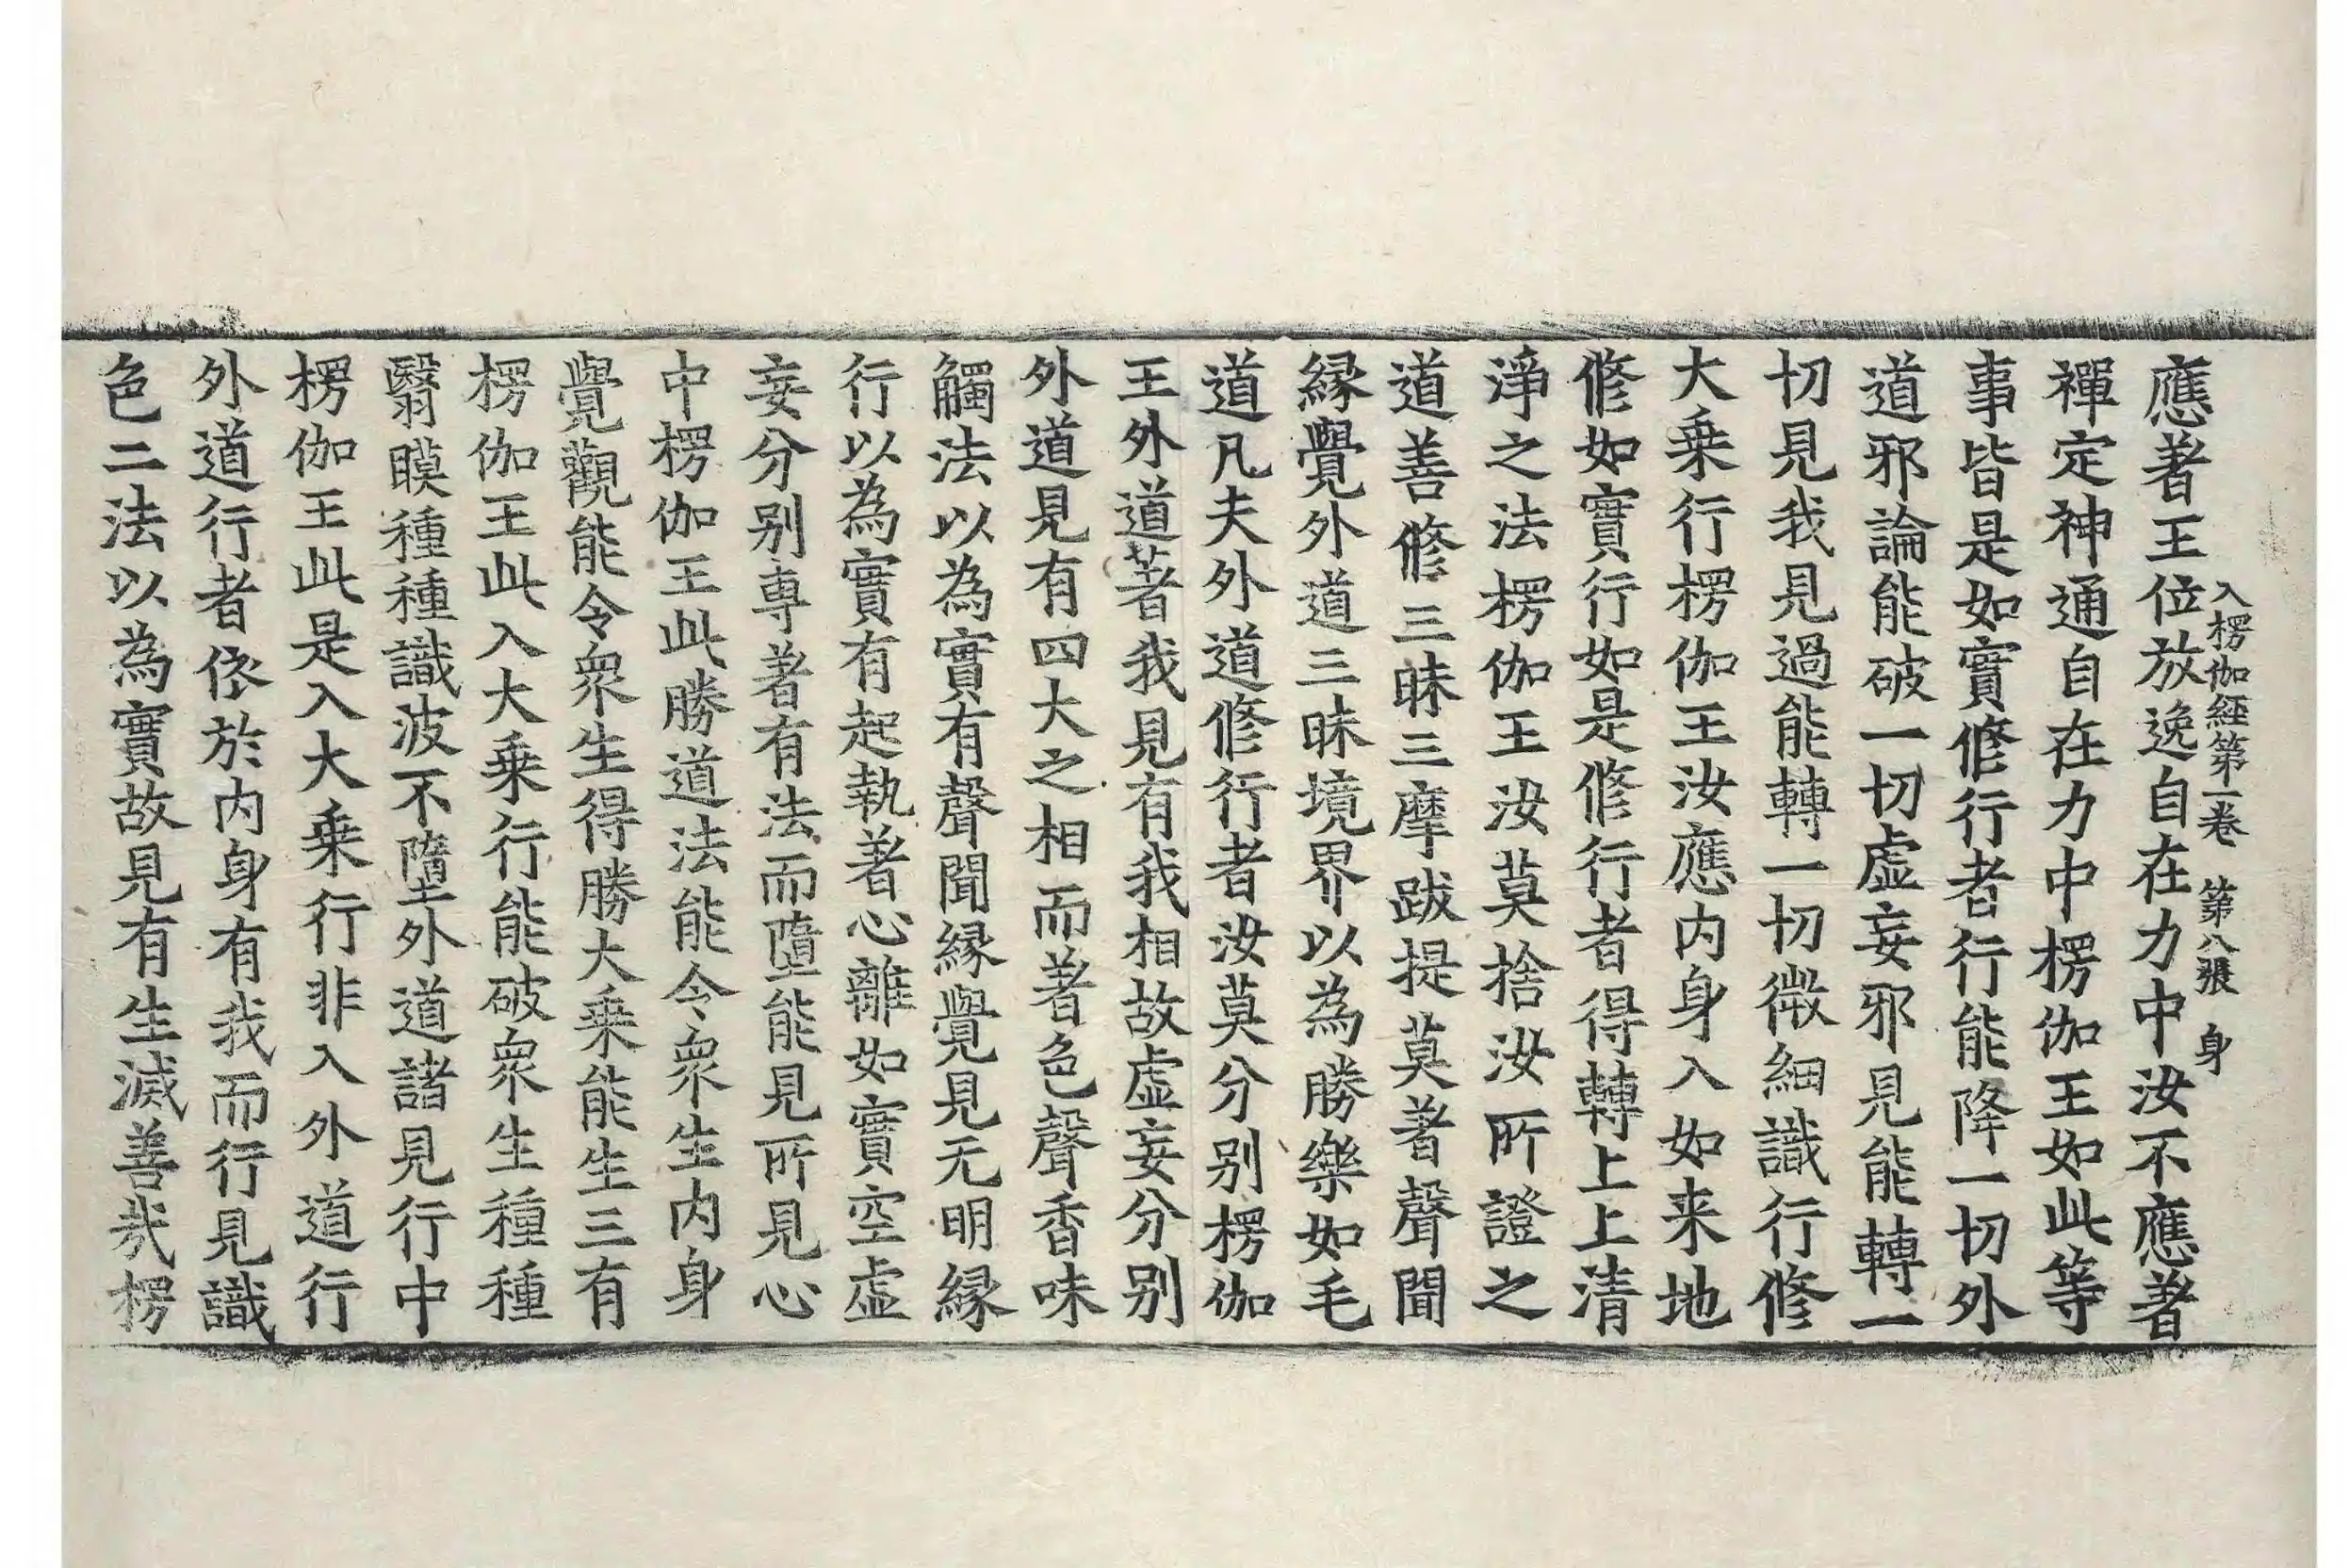 入楞伽經第一卷 第八張 身
應著王位放逸自在力中汝不應著
禪定神通自在力中楞伽王如此等
事皆是如實修行者行能降一切外
道邪論能破一切虛妄邪見能轉一
切見我見過能轉一切微細識行修
大乗行楞伽王汝應内身入如来地
修如實行如是修行者得轉上上清
淨之法楞伽王汝莫捨汝所證之
道善修三昧三摩跋提莫著聲聞
縁覺外道三昧境界以為勝樂如毛
道凡夫外道修行者汝莫分别楞伽
王外道著我見有我相故虛妄分别
外道見有四大之相而著色聲香味
觸法以為實有聲聞縁覺見无明縁
行以為實有起執著心離如實空虛
妄分别専著有法而墮能見所見心
中楞伽王此勝道法能令衆生内身
覺觀能令衆生得勝大乗能生三有
楞伽王此入大乗行能破衆生種種
翳瞙種種識波不墮外道諸見行中
楞伽王此是入大乗行非入外道行
外道行者依於内身有我而行見識
色二法以為實故見有生滅善哉楞